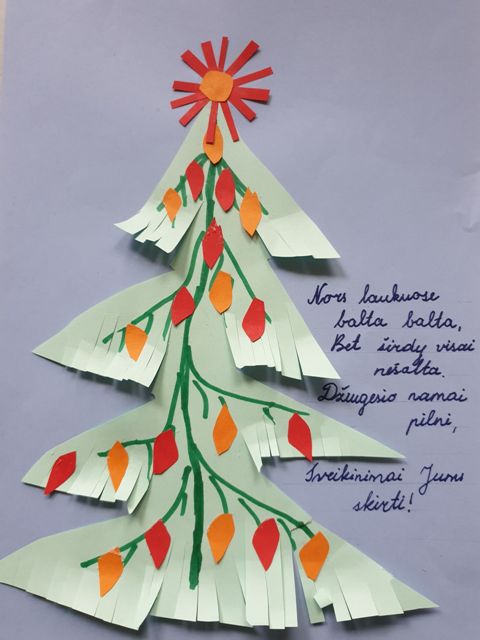 Nors laukuose
balta balta,
Bet širdy visai
nešalta.
Džiugesio namai
pilni,
Sveikinimai Jums
skirti!